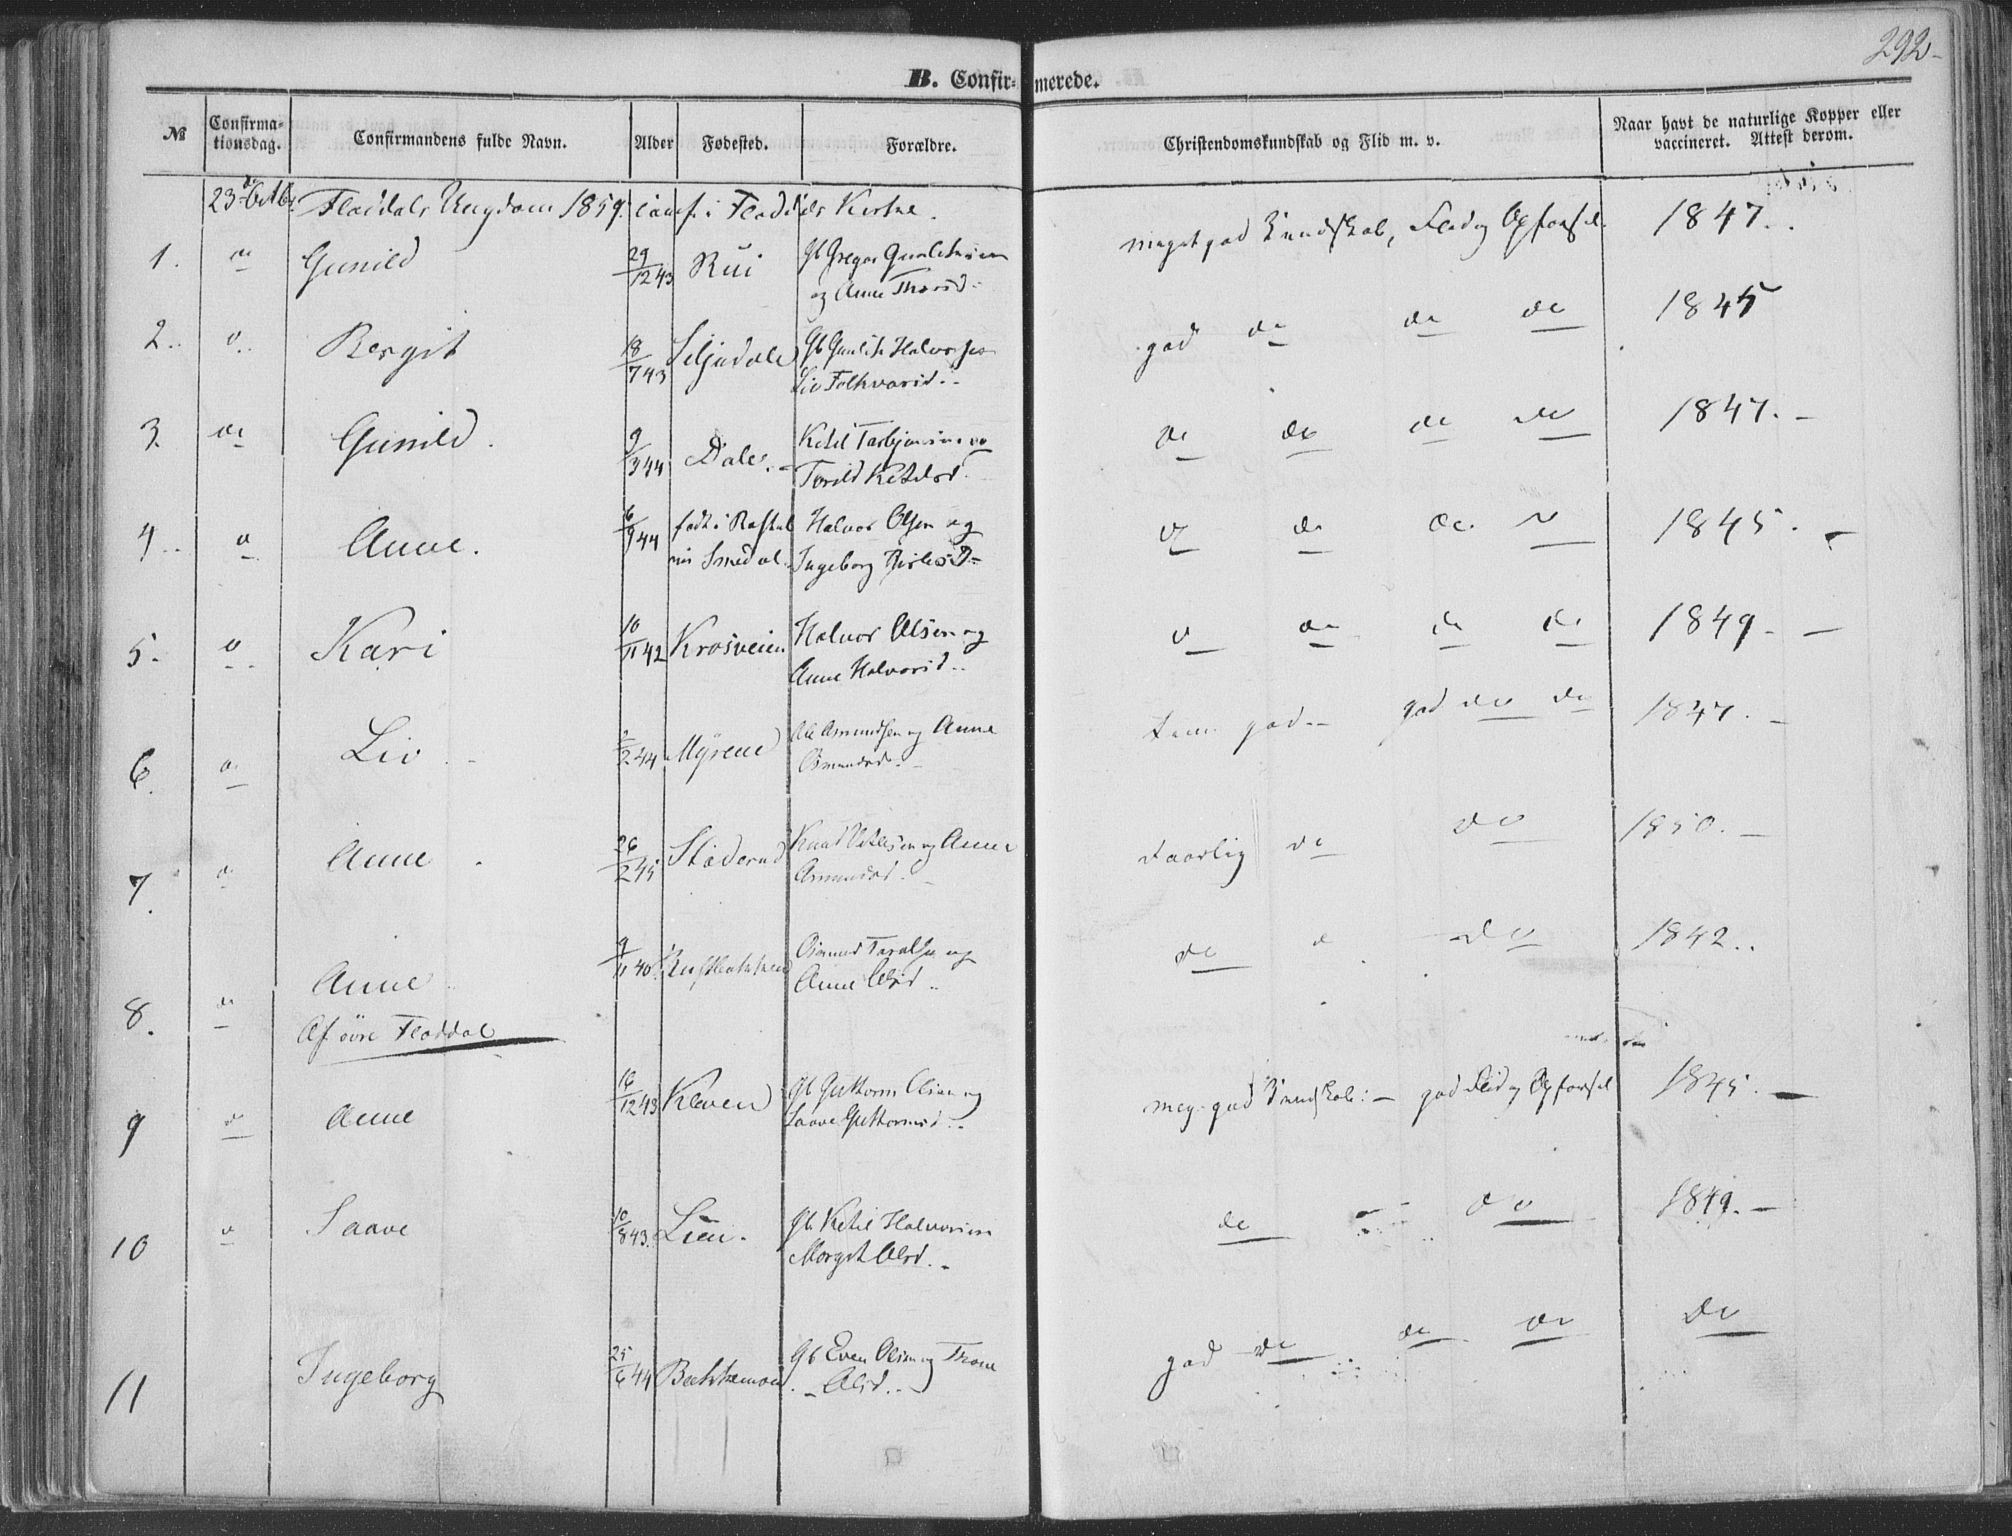 292
B. Confirmerede.
№ Confirmationsdag. Confirmandens fulde Navn. Alder Fødested. Forældre. Christendomskundskab og Flid m. v. Naar havt de naturlige Kopper eller vaccineret. Attest derom.
23 Octbr Fladdals Ungdom 1859. conf. i Fladdals Kirke.
1. do Gunild 29/12 43 Rui Gb Gregar Gunleiksen meget god Kundskab, Flid og Opførsel. 1847.
og Anne Thorsd.
2. do Bergit 18/7 43 Seljudale Gb Gunleik Halvorsen god do do do 1845
Liv Folkvarsd.
3. do Gunild 9/3 44 Dale. Ketil Tarbjønsen og do do do do 1847.
Torild Ketilsd.
4. do Anne. 6/9 44 født i Smedal Halvor Olsen og do do do do 1845.
Ingeborg
5. do Kari 10/11 42 Krosveien Halvor Olsen og do do do do 1849.
Anne Halvorsd.
6. do Liv 2/2 44 Myrene Ole Amundsen og Anne tem. god god do do 1847.
Osmundsd.
7. do Anne 26/2 45 Staderud Knud Vetlesen og Anne daarlig do do 1850.
Amundsd.
8. do Anne 9/11 40 Osmund Taralsen og do do do 1842.
Anne Olsd.
Af øvre Fladdal
9 do Anne 16/12 43 Kleven Gb Guttorm Olsen og meg. god Kundskab: god Flid og Opførsel 1845.
Saave Guttormsd.
10 do Saave 10/8 43. Lien. Gb Ketil Halvorsen do do 1849.
Margit Olsd.
11 Ingeborg 25/6 44 Bakkemoen Gb Even Olsen og Thone god do do do do
Olsd.